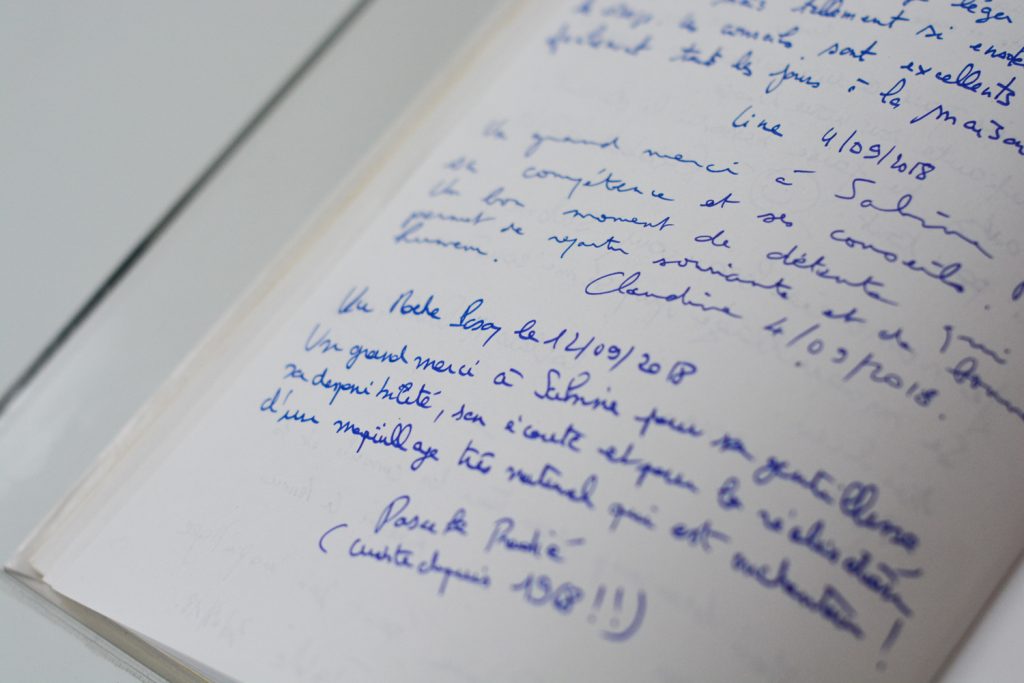 léger
tellement si
conseils sont excellents
tout les jours à la maison
Line 4/09/2018
Un grand merci à Sabine
sa compétence et ses conseils.
Un bon moment de détente qui
permet de repartir souriante et de bonne
humeur.
Claudine 4/09/2018.
La Roche Posay le 12/09/2018
Un grand merci à Sabine pour sa gentillesse
sa disponibilité, son écoute et pour la réalisation
d'un maquillage très naturel qui est !
(curiste depuis !!)